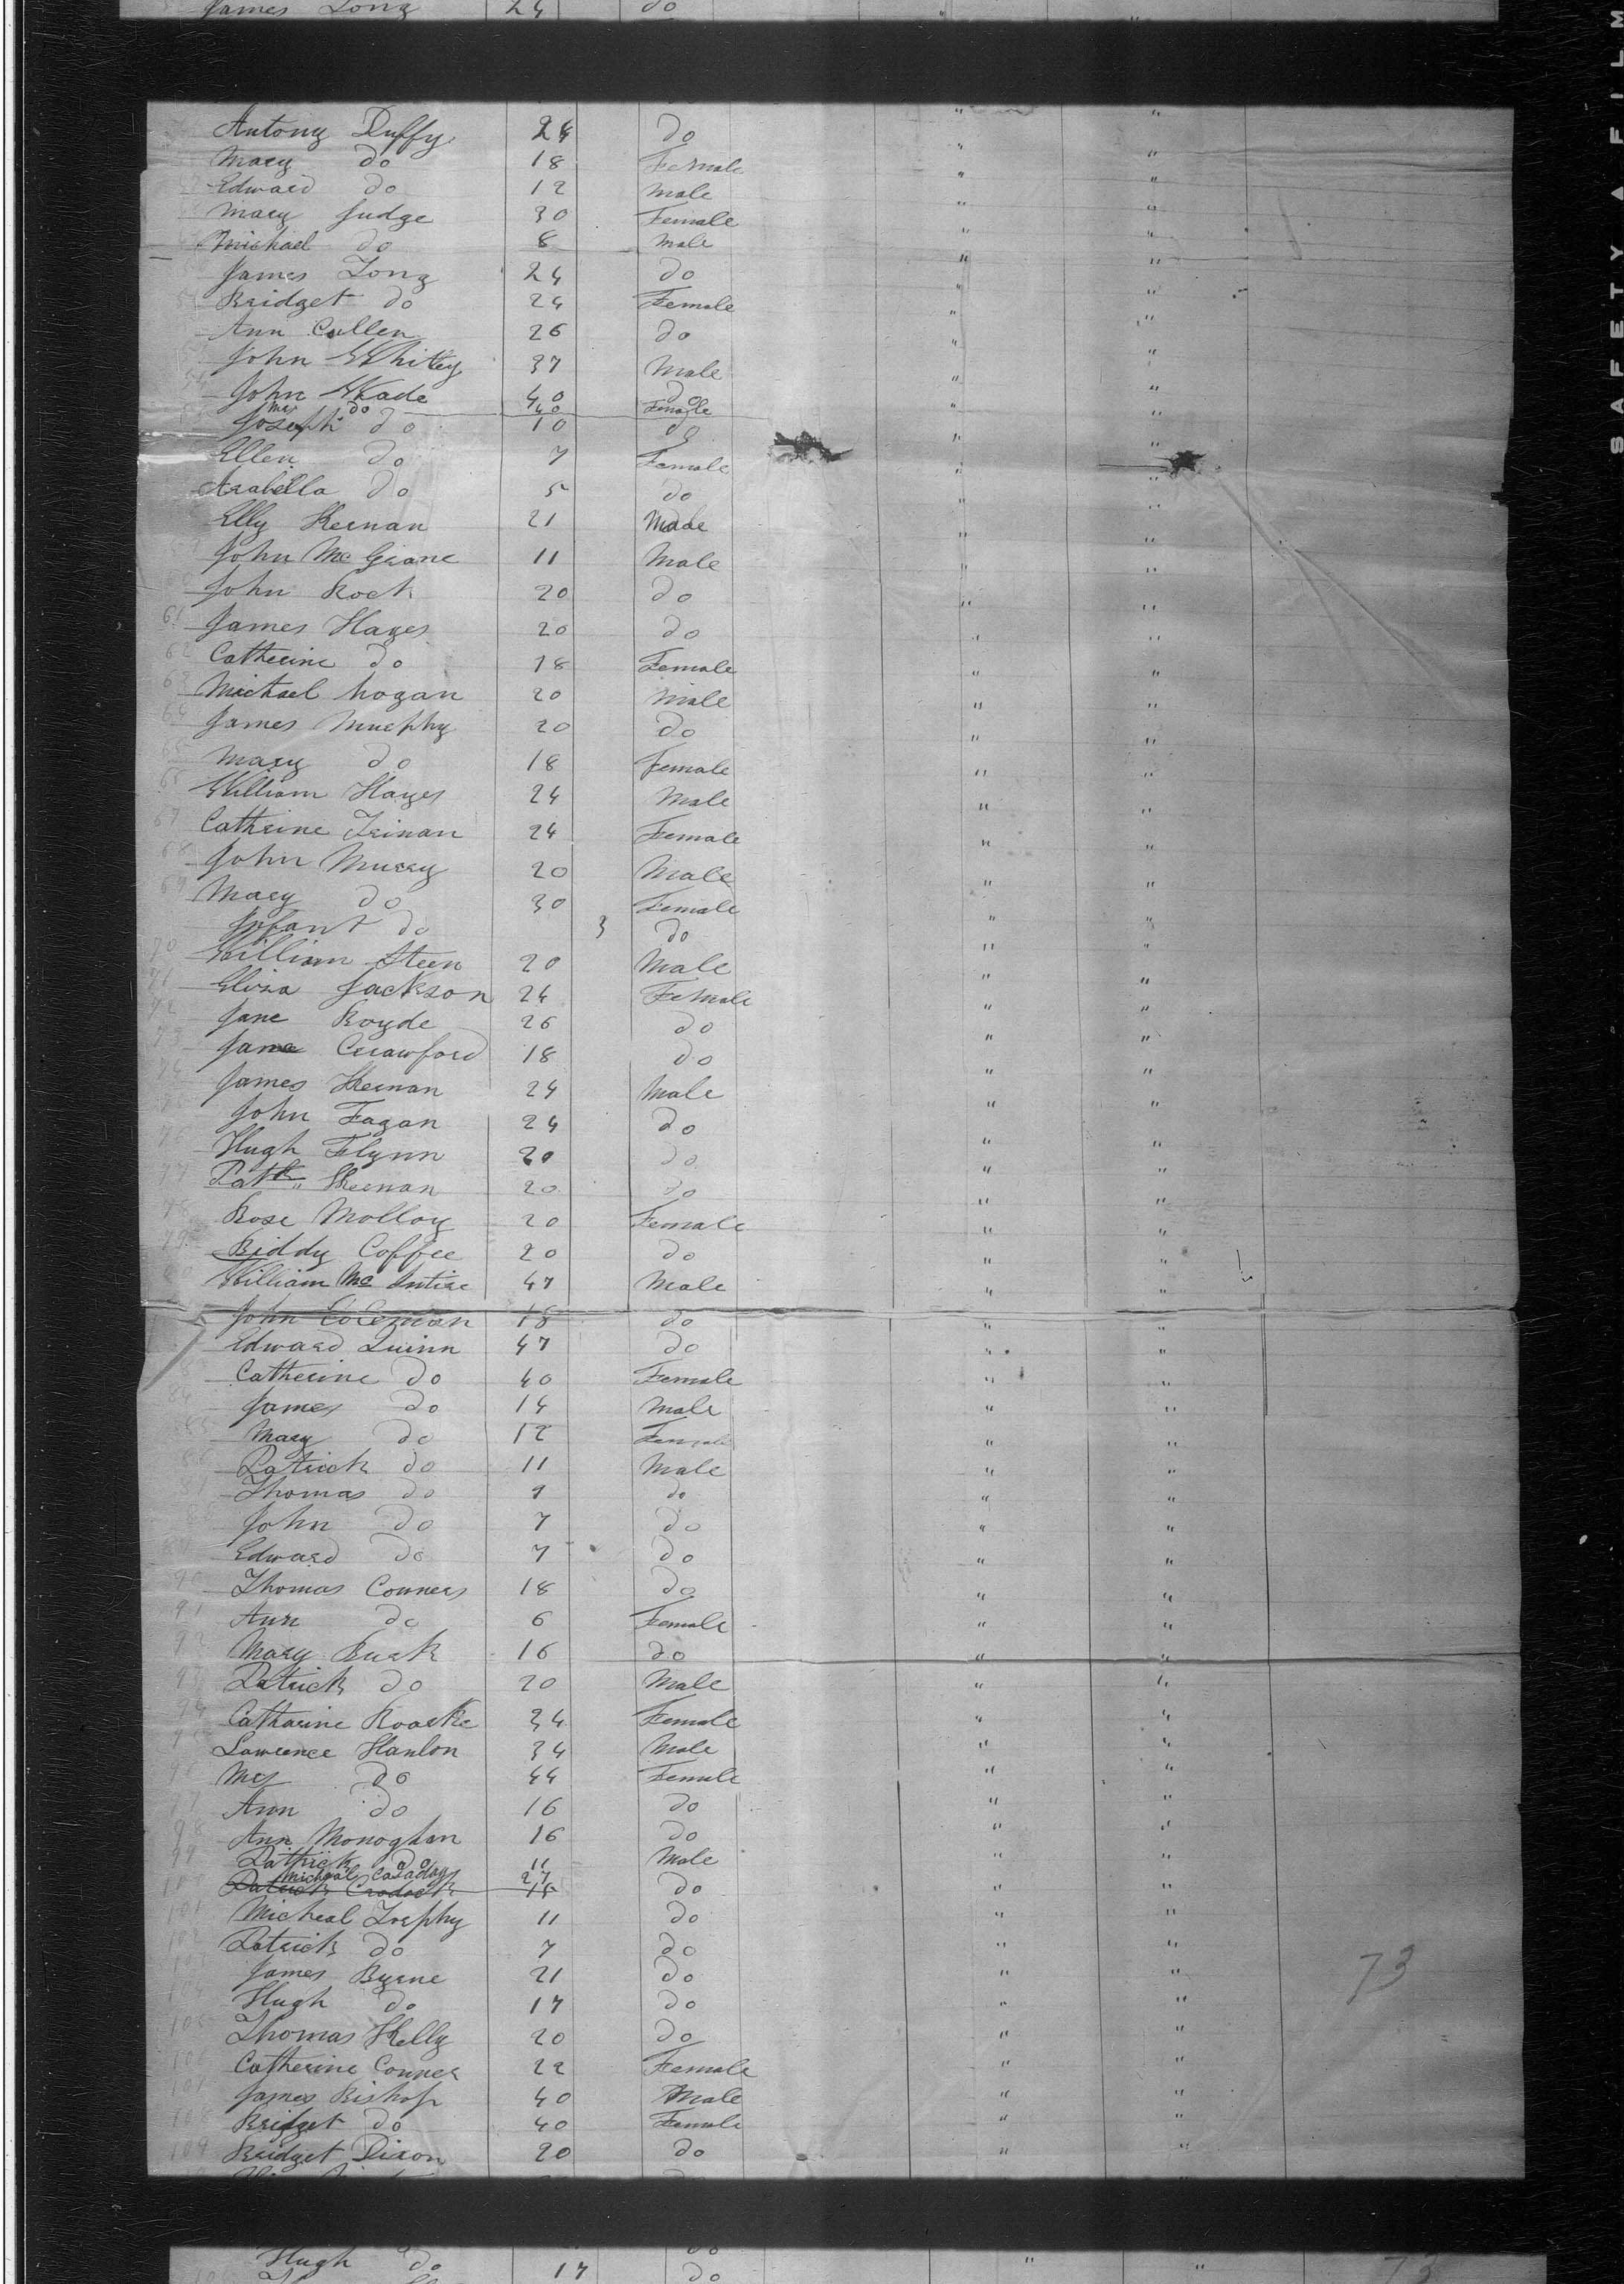 James Long 24 do
Antony Duffy 24 do " "
Mary do 18 Female " "
Edward do 12 Male " "
Mary Judge 30 Female " "
Michael do 8 Male " "
James Long 24 do " "
Bridget do 24 Female " "
Ann Cullen 26 do " "
John Whitty 37 Male " "
John Wade 40 do " "
Mrs do 40 Female
Joseph do 10 do " "
Ellen do 7 Female " "
Arabella do 5 do " "
Elly Keenan 21 " "
John Mc Grane 11 Male " "
John Rock 20 do " "
61 James Hayes 20 do " "
62 Catherine do 18 Female " "
63 Michael hogan 20 Male " "
64 James Murphy 20 do " "
65 Mary do 18 Female " "
66 William Hayes 24 Male " "
67 Cathrine Trinan 24 Female " "
68 John Murry 20 Male " "
69 Mary do 30 Female " "
Infant do 3 do " "
70 William Steen 20 Male " "
71 Eliza Jackson 24 Female " "
72 Jane Boyde 26 do " "
73 Jane Crawford 18 do " "
74 James Keenan 24 Male " "
75 John Fagan 24 do " "
76 Hugh Flynn 20 do " "
77 Patk Keenan 20 do " "
78 Rose Molloy 20 Female " "
79 Biddy Coffee 20 do " "
80 William Mc Intire 47 Male " "
John Coleman 18 do " "
Edward Quinn 47 do " "
83 Catherine do 40 Female " "
84 James do 14 Male " "
85 Mary do 12 Female " "
86 Patrick do 11 Male " "
87 Thomas do 9 do " "
88 John do 7 do " "
89 Edward do 7 do " "
90 Thomas Conners 18 do " "
91 Ann do 6 Female " "
92 Mary Burk 16 do " "
93 Patrick do 20 Male " "
94 Catharine Roarke 34 Female " "
95 Lawrence Hanlon 34 Male " "
96 Mrs do 44 Female " "
97 Ann do 16 do " "
98 Ann Monoghan 16 do " "
99 Pathick do 11 Male " "
Micheal Casaday 27
100 Patrick Cradock 15 do " "
101 Micheal Trephy 11 do " "
102 Patrick do 7 do " "
103 James Byrne 21 do " "
73
104 Hugh do 17 do " "
105 Thomas Kelly 20 do " "
106 Catherine Conner 22 Female " "
107 James Bishop 40 Male " "
108 Bridget do 40 Female " "
109 Bridget Dixon 20 do " "
Hugh do 17 do " " 73
SAFETY FILM